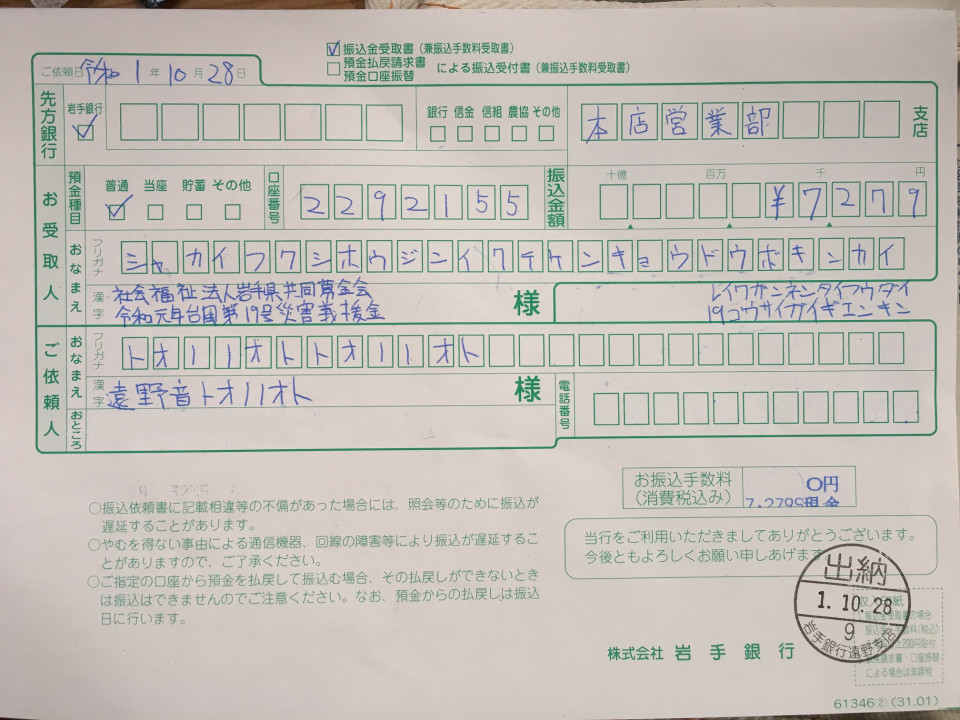 ☑ 振込金受取書(兼振込手数料受取書)
□ 預金払戻請求書
預金口座振替 による振込受付書(兼振込手数料受取書)
ご依頼日 令和 1 年 10 月 28 日
先方銀行 岩手銀行 銀行 信金 信組 農協 その他 本店営業部 支店
お受取人 預金種目 普通 当座 貯蓄 その他 口座番号 2292155 振込金額 十億 百万 千 円 ¥7279
おなまえ フリガナ シャカイフクシホウジンイワテケンキョウドウボキンカイ
漢字 社会福祉法人岩手県共同募金会 様 レイワガンネンタイフウダイ
令和元年台風第19号災害義援金 19ゴウサイガイギエンキン
ご依頼人 おなまえ フリガナ トオノノオトトオノノオト
漢字 遠野音トオノノオト 様 電話番号
おところ
お振込手数料 0円
(消費税込み) 7,279S現金
○振込依頼書に記載相違等の不備があった場合には、照会等のために振込が
遅延することがあります。
○やむを得ない事由による通信機器、回線の障害等により振込が遅延するこ
とがありますので、ご了承ください。
○ご指定の口座から預金を払戻して振込む場合、その払戻しができないとき
は振込はできませんのでご注意ください。なお、預金からの払戻しは振込
日に行います。
当行をご利用いただきましてありがとうございます。
今後ともよろしくお願い申しあげます
出納
1.10.28
9
岩手銀行遠野支店
株式会社 岩手銀行
61346② (31.01)